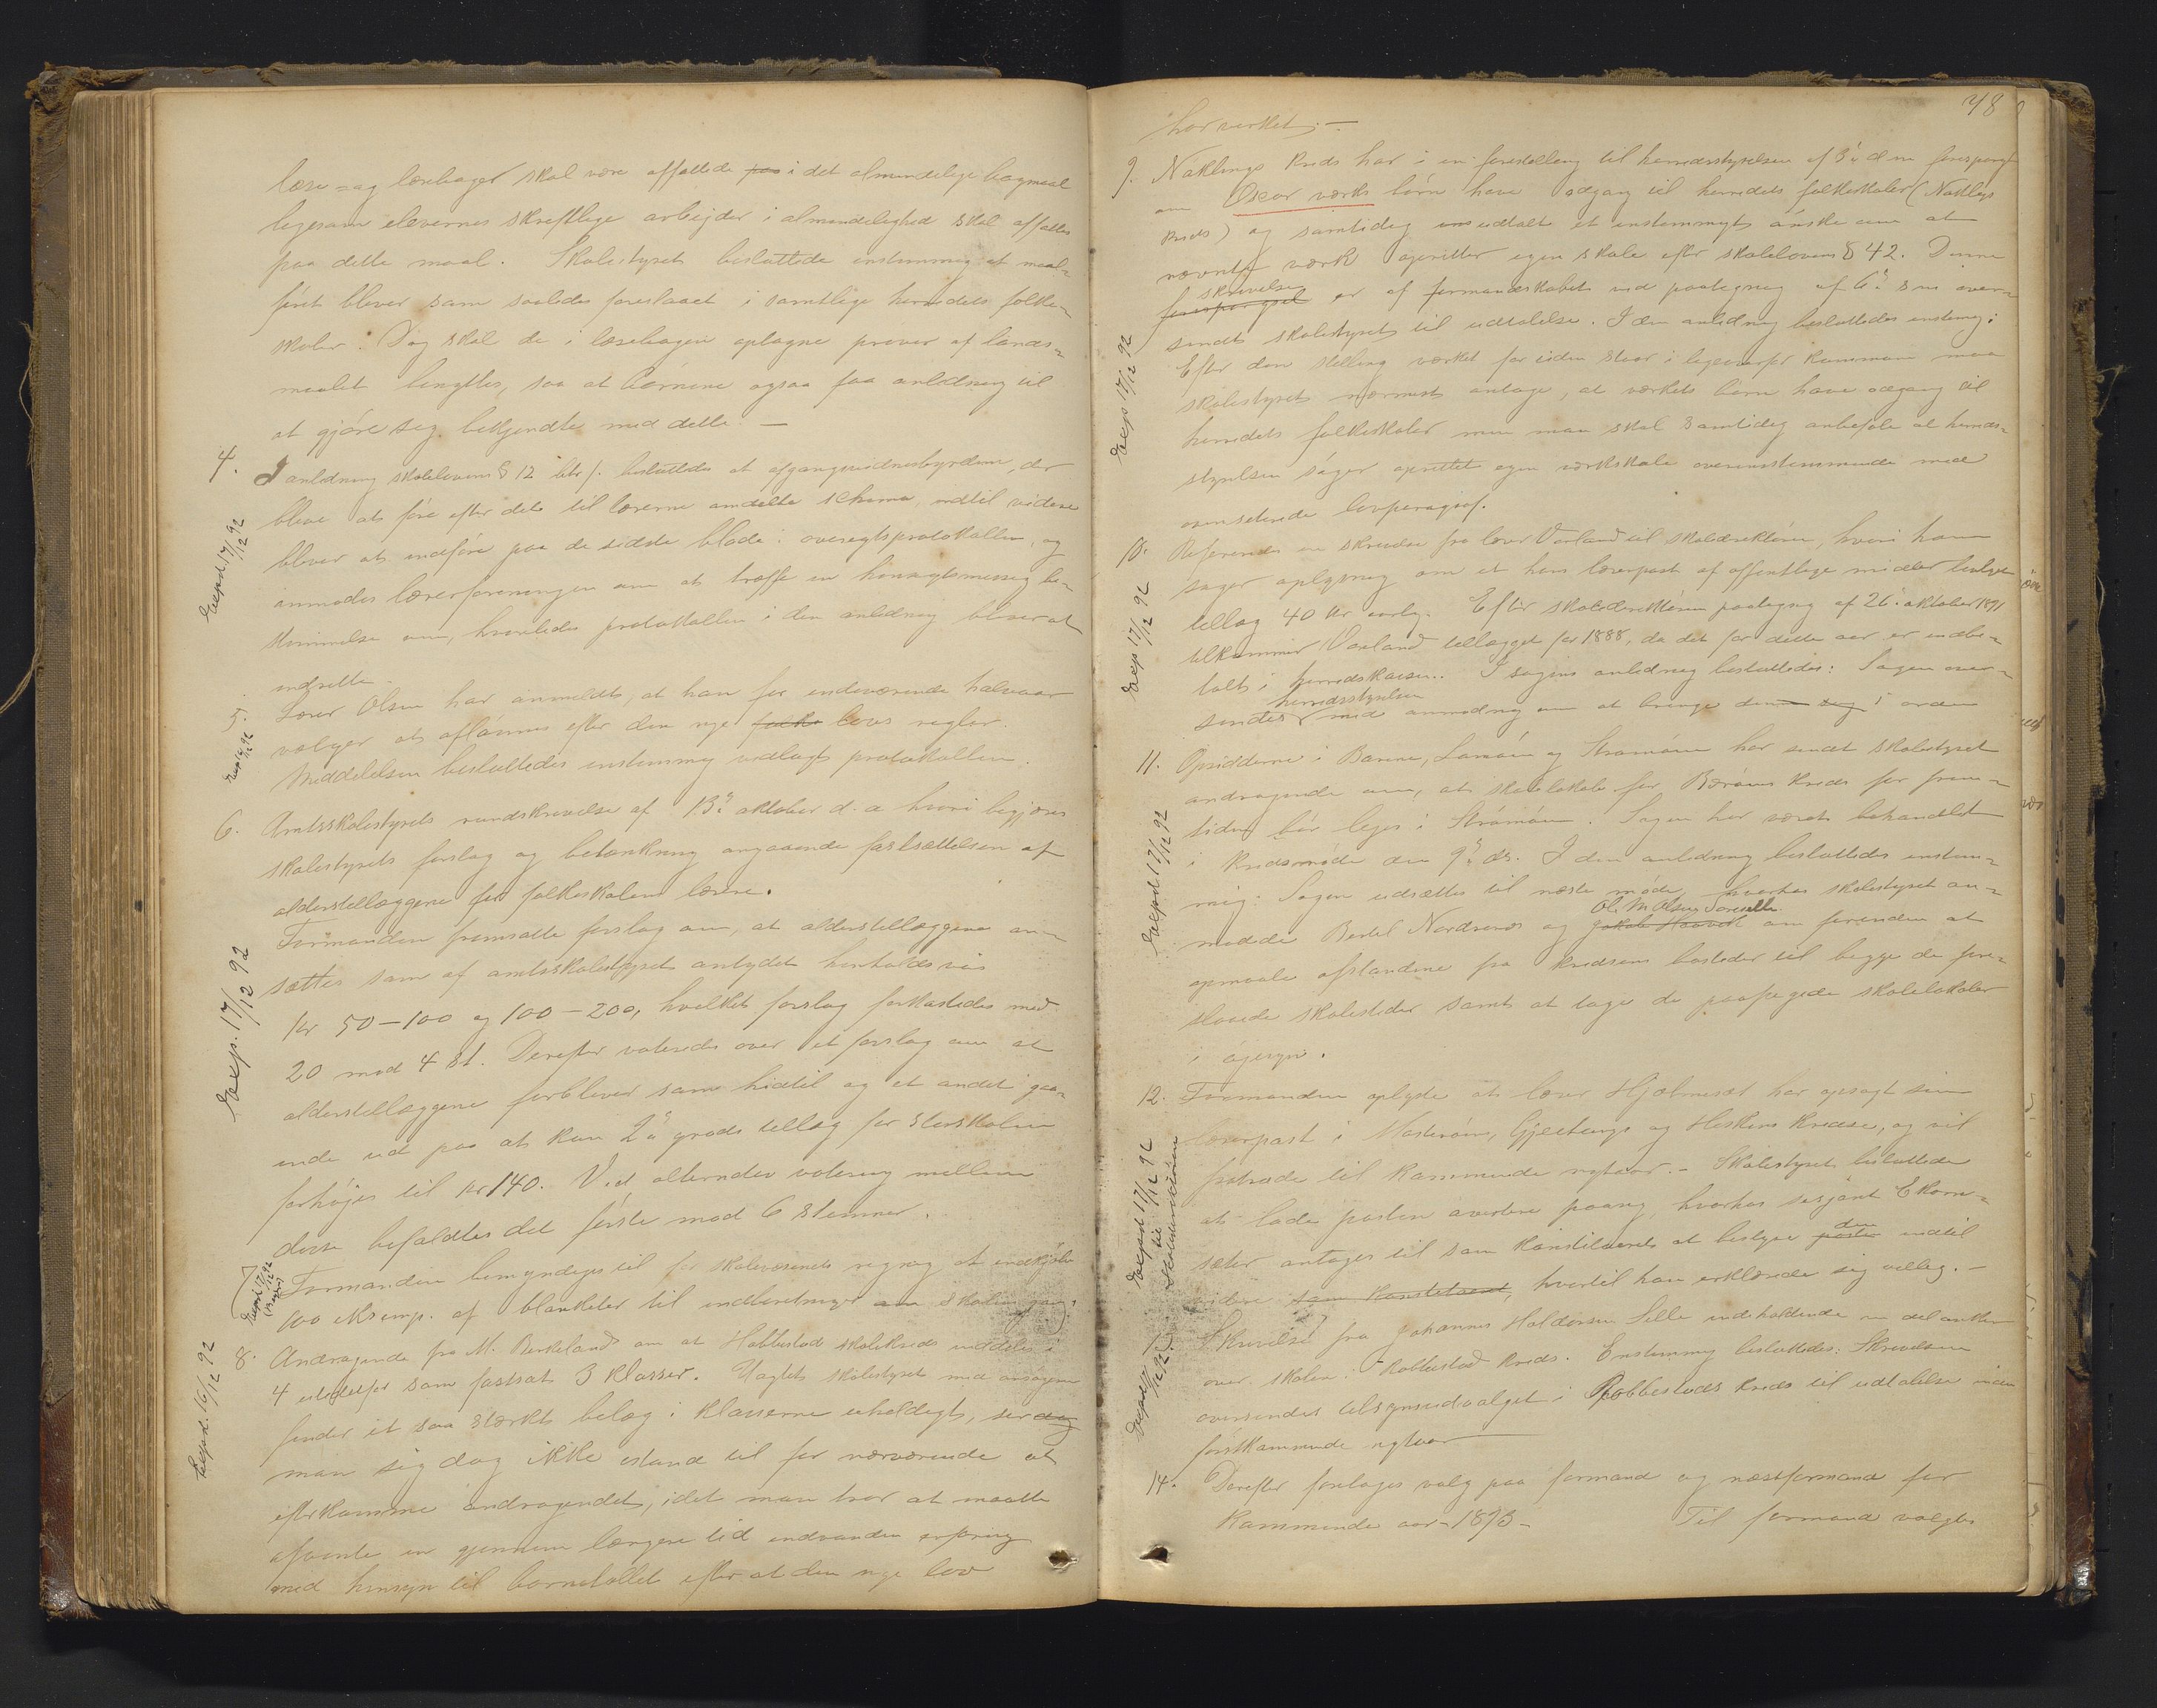 læse- og lærebøger skal være affattede paa i det almindelige bogmaal
ligesom elevernes skriftlige arbejder i almindelighed skal affattes
paa dette maal. Skolestyret besluttede enstemmig at maal-
føret bliver som saaledes foreslaaet i samtlige herredets folke-
skoler. Dog skal de i læsebogen optagne prøver af lands-
maalet benyttes, saa at børnene ogsaa faa anledning til
at gjøre seg bekjendte med dette. —
4. I anledning skolelovens § 12 besluttedes at afgangsvidnesbyrdene, der
blive at føre efter det til lærerne omdelte schema, indtil videre
bliver at indføre paa de sidste blade i oversigtsprotokollen, og
anmodes lærerforeningen om at træffe en hensigtsmessig be-
stemmelse om, hvorledes protokollen i den anledning bliver at
indrette.
Expd 17/12 92
5. Lærer Olsen har anmeldt, at han for indeværende halvaar
vælger at aflønnes efter den nye folke lovs regler.
Meddelelsen besluttedes enstemmig vedlagt protokollen.
Expd 16/12 92
6. Amtsskolestyrets rundskrivelse af 13de oktober d. a. hvori begjæres
skolestyrets forslag og betænkning angaaende fastsættelsen af
alderstillæggene for folkeskolens lærere.
Formanden fremsatte forslag om, at alderstillæggene an-
sættes som af amtsskolestyret antydet henholdsvis
kr 50 — 100 og 100 — 200, hvilket forslag forkastedes med
20 mod 4 st. Derefter voteredes over et forslag om at
alderstillæggene forbliver som hidtil og et andet gaa-
ende ud paa at kun 2den grads tillæg for storskolen
forhøjes til kr 140. Ved alternativ votering mellem
disse befaldtes det første mod 6 stemmer.
Exp. 17/12 92
7 Formanden bemyndiges til for skolevæsenets regning at indkjøbe
100 eksemp. af blanketer til indberetninger om skolens gang.
Expd 17/12 92
8. Andragende fra M. Berkeland om at Hobbestad skolekreds inddeles i
4 istedetfor som fastsat 3 klasser. Uagtet skolestyret med ansøgeren
finder et saa stærkt belæg i klasserne uheldigt, ser dog
man sig dog ikke istand til for nærværende at
efterkomme andragendet, idet man tror at maatte
afvente en gjennem længere tid indvunden erfaring
med hensyn til børnetallet efter at den nye lov
Expd. 16/12 92
48
har verket. —
9. Nøklings kreds har i en forestilling til herredsstyrelsen af 3de d.m. forespurgt
om Oscar værks børn have adgang til herredets folkeskoler (Nøklings
kreds) og samtidig udtalt et enstemmigt ønske om at
nævnte værk opretter egen skole efter skolelovens § 42. Denne
forespørgsel skrivelse er af formandskabet ved paategning af 6te s.m. over-
sendt skolestyret til udtalelse. I den anledning besluttedes enstemmig:
Efter den stilling værket for tiden staar i ligeoverfor kommunen maa
skolestyret nærmest antage, at værkets børn have adgang til
herredets folkeskoler men man skal samtidig anbefale at herreds-
styrelsen søger oprettet egen værkskole overensstemmende med
ovenciterede lovparagraf.
Exp 17/12 92
10. Refereredes en skrivelse fra lærer Vorland til skoledirektøren, hvori han
søger oplysning om et hans lærerpost af offentlige midler
tillæg 40 kr aarlig. Efter skoledirektørens paategning af 26. oktober 1891
tilkommer Vorland tillægget for 1888, da det for dette aar er indbe-
talt i herredskassen. I sagens anledning besluttedes: Sagen over-
sendes herredsstyrelsen med anmodning om at bringe den sag i orden
Exp 17/12 92
11. Opsidderne i og Strømøen har sendt skolestyret
andragende om, at skolelokale for Bærøens kreds for frem-
tiden bør leges i Strømøen. Sagen har været behandlet
i kredsmøde den 9de ds. I den anledning besluttedes enstem-
mig: Sagen udsættes til næste møde, hvorhos skolestyret an-
modede Bertel Nordsnes og Jakob Haavik Ol. M. Olsen om forinden at
opmaale afstandene fra kredsens bosteder til begge de fore-
slaaede skolesteder samt at tage de paapegede skolelokaler
i øjesyn.
Expd 17/12 92
12. Formanden oplyste at lærer Hjelmeset har opsagt sin
lærerpost i Mosterøens, Gjeitungs og Hiskens kredse, og vil
fratræde til kommende nytaar. — Skolestyret besluttede
at lade posten avertere paany, hvorhos sersjant Ekorn-
sæter antages til som konstitueret at bestyre posten den indtil
videre som konstitueret, hvortil han erklærede sig villig. —
Expd 17/12 92 til Skoledirektøren
Skrivelse fra Johannes Haldorsen Lille indholdende en del anker
over skolen i Robbestad kreds. Enstemmig besluttedes: Skrivelsen
oversendes tilsynsudvalget i Robbestads kreds til udtalelse inden
førstkommende nytaar
14. Derefter foretoges valg paa formand og næstformand for
kommende aar - 1893 - Til formand valgtes